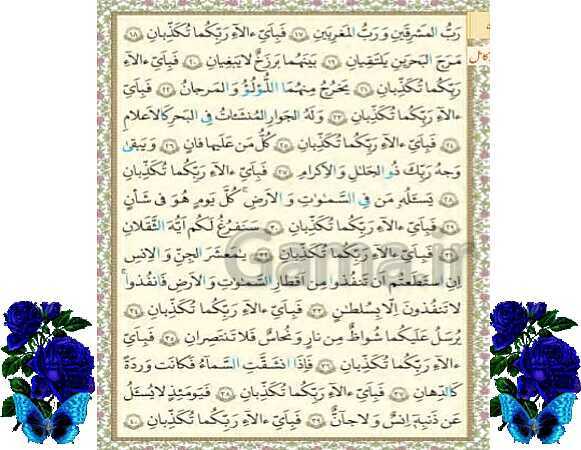 رَبُّ المَشرِقَينِ وَ رَبُّ المَغرِبَينِ ﴿١٧﴾ فَبِاَيِّ ءالآءِ رَبِّكُما تُكَذِّبانِ ﴿١٨﴾
مَرَجَ البَحرَينِ يَلتَقِيانِ ﴿١٩﴾ بَينَهُما بَرزَخٌ لا يَبغِيانِ ﴿٢٠﴾ فَبِاَيِّ ءالآءِ
رَبِّكُما تُكَذِّبانِ ﴿٢١﴾ يَخرُجُ مِنهُمَا اللُّؤلُؤُ وَ المَرجانُ ﴿٢٢﴾ فَبِاَيِّ
ءالآءِ رَبِّكُما تُكَذِّبانِ ﴿٢٣﴾ وَ لَهُ الجَوارِ المُنشَئاتُ فِي البَحرِ كَالاَعلامِ
﴿٢٤﴾ فَبِاَيِّ ءالآءِ رَبِّكُما تُكَذِّبانِ ﴿٢٥﴾ كُلُّ مَن عَلَيها فانٍ ﴿٢٦﴾ وَ يَبقىٰ
وَجهُ رَبِّكَ ذُو الجَلٰلِ وَ الاِكرامِ ﴿٢٧﴾ فَبِاَيِّ ءالآءِ رَبِّكُما تُكَذِّبانِ
﴿٢٨﴾ يَسئَلُهٗ مَن فِي السَّمٰوٰتِ وَ الاَرضِ ۚ كُلَّ يَومٍ هُوَ في شَأنٍ
﴿٢٩﴾ فَبِاَيِّ ءالآءِ رَبِّكُما تُكَذِّبانِ ﴿٣٠﴾ سَنَفرُغُ لَكُم اَيُّهَ الثَّقَلانِ
﴿٣١﴾ فَبِاَيِّ ءالآءِ رَبِّكُما تُكَذِّبانِ ﴿٣٢﴾ يٰمَعشَرَ الجِنِّ وَ الاِنسِ
اِنِ استَطَعتُم اَن تَنفُذوا مِن اَقطارِ السَّمٰوٰتِ وَ الاَرضِ فَانفُذوا ۚ
لا تَنفُذونَ اِلّا بِسُلطٰنٍ ﴿٣٣﴾ فَبِاَيِّ ءالآءِ رَبِّكُما تُكَذِّبانِ ﴿٣٤﴾
يُرسَلُ عَلَيكُما شُواظٌ مِن نارٍ وَ نُحاسٌ فَلا تَنتَصِرانِ ﴿٣٥﴾ فَبِاَيِّ
ءالآءِ رَبِّكُما تُكَذِّبانِ ﴿٣٦﴾ فَاِذَا انشَقَّتِ السَّمآءُ فَكانَت وَردَةً
كَالدِّهانِ ﴿٣٧﴾ فَبِاَيِّ ءالآءِ رَبِّكُما تُكَذِّبانِ ﴿٣٨﴾ فَيَومَئِذٍ لا يُسئَلُ
عَن ذَنبِهٖ اِنسٌ وَ لا جآنٌّ ﴿٣٩﴾ فَبِاَيِّ ءالآءِ رَبِّكُما تُكَذِّبانِ ﴿٤٠﴾
Gama.ir